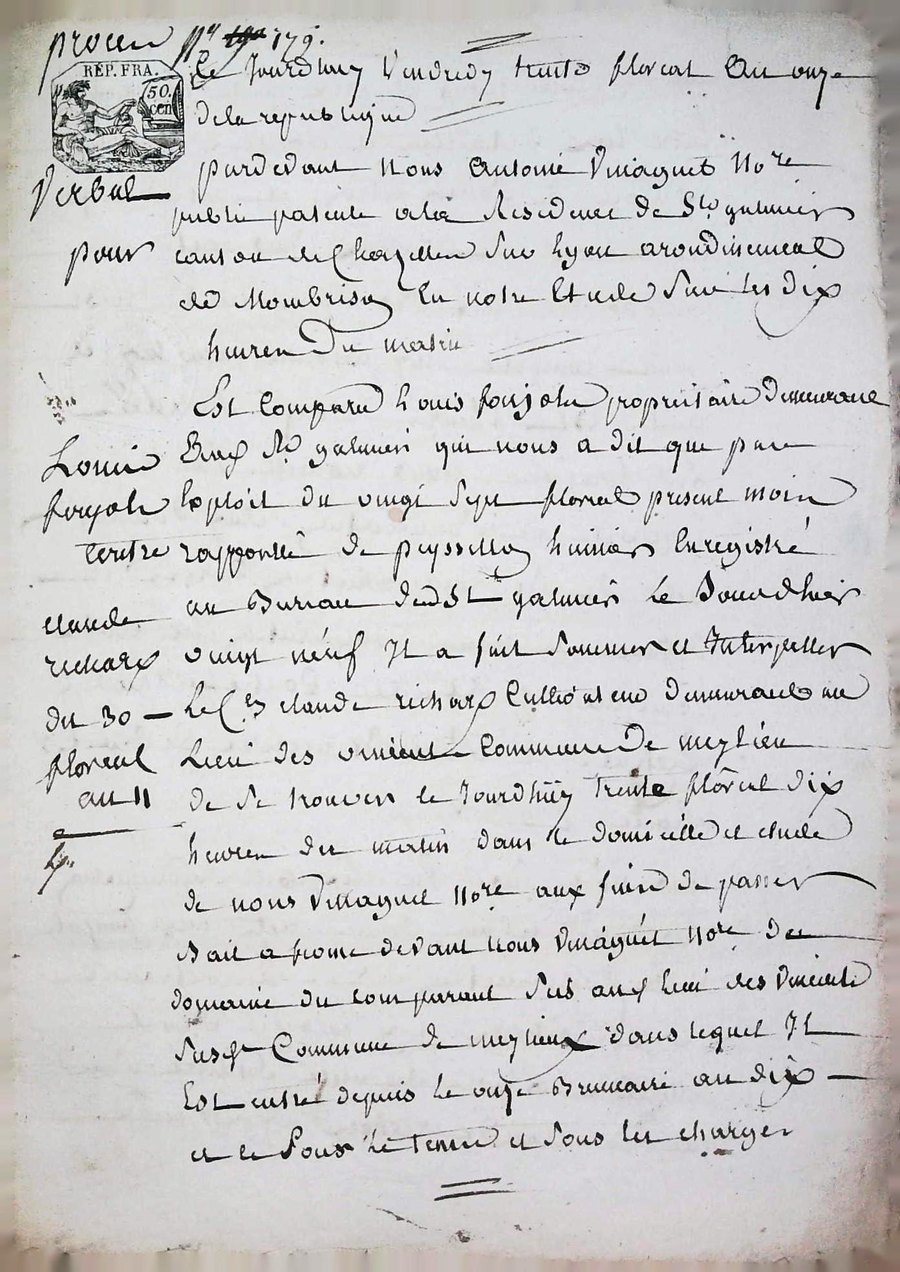 procen nº 179.
REP. FRA.
50.
cen
Verbal
pour
Louis
foujols
contre
claude
richarx
du 30
floreal
an 11
Ce Jourdhuy Vendredy trente floreal an onze
de la republique
pardevant Nous Antoine Vinagnet Nore
public patenté a la Residence de St galmier
canton de Chazelles Sur Lyon arondissement
de Mombrison En notre Etude Sur les dix
heures Du matin
Est Comparu Louis foujols propriétaire Demeurant
St galmier qui nous a dit que par
Exploit du vingt Sept floreal present mois
rapporté de peyssellon huissier Enregistré
au Bureau dud St galmier le Jourdhier
vingt néuf Il a fait Sommer et Interpeller
Le Cen claude richarx Cultivateur demeurant au
Lieu des vincent Commune De meylieu
de Se trouver le Jourdhuy trente floréal dix
heures du matin dans le domicille et etude
de nous Vinagnet Nore aux fins de passer
Bail a ferme devant nous Vinagnet Nore du
domaine du comparant Sis au lieu des Vincents
Susd Commune de meylieux dans lequel Il
Est entré depuis le onze Brumaire an dix
et ce Sous le terme et Sous les charges